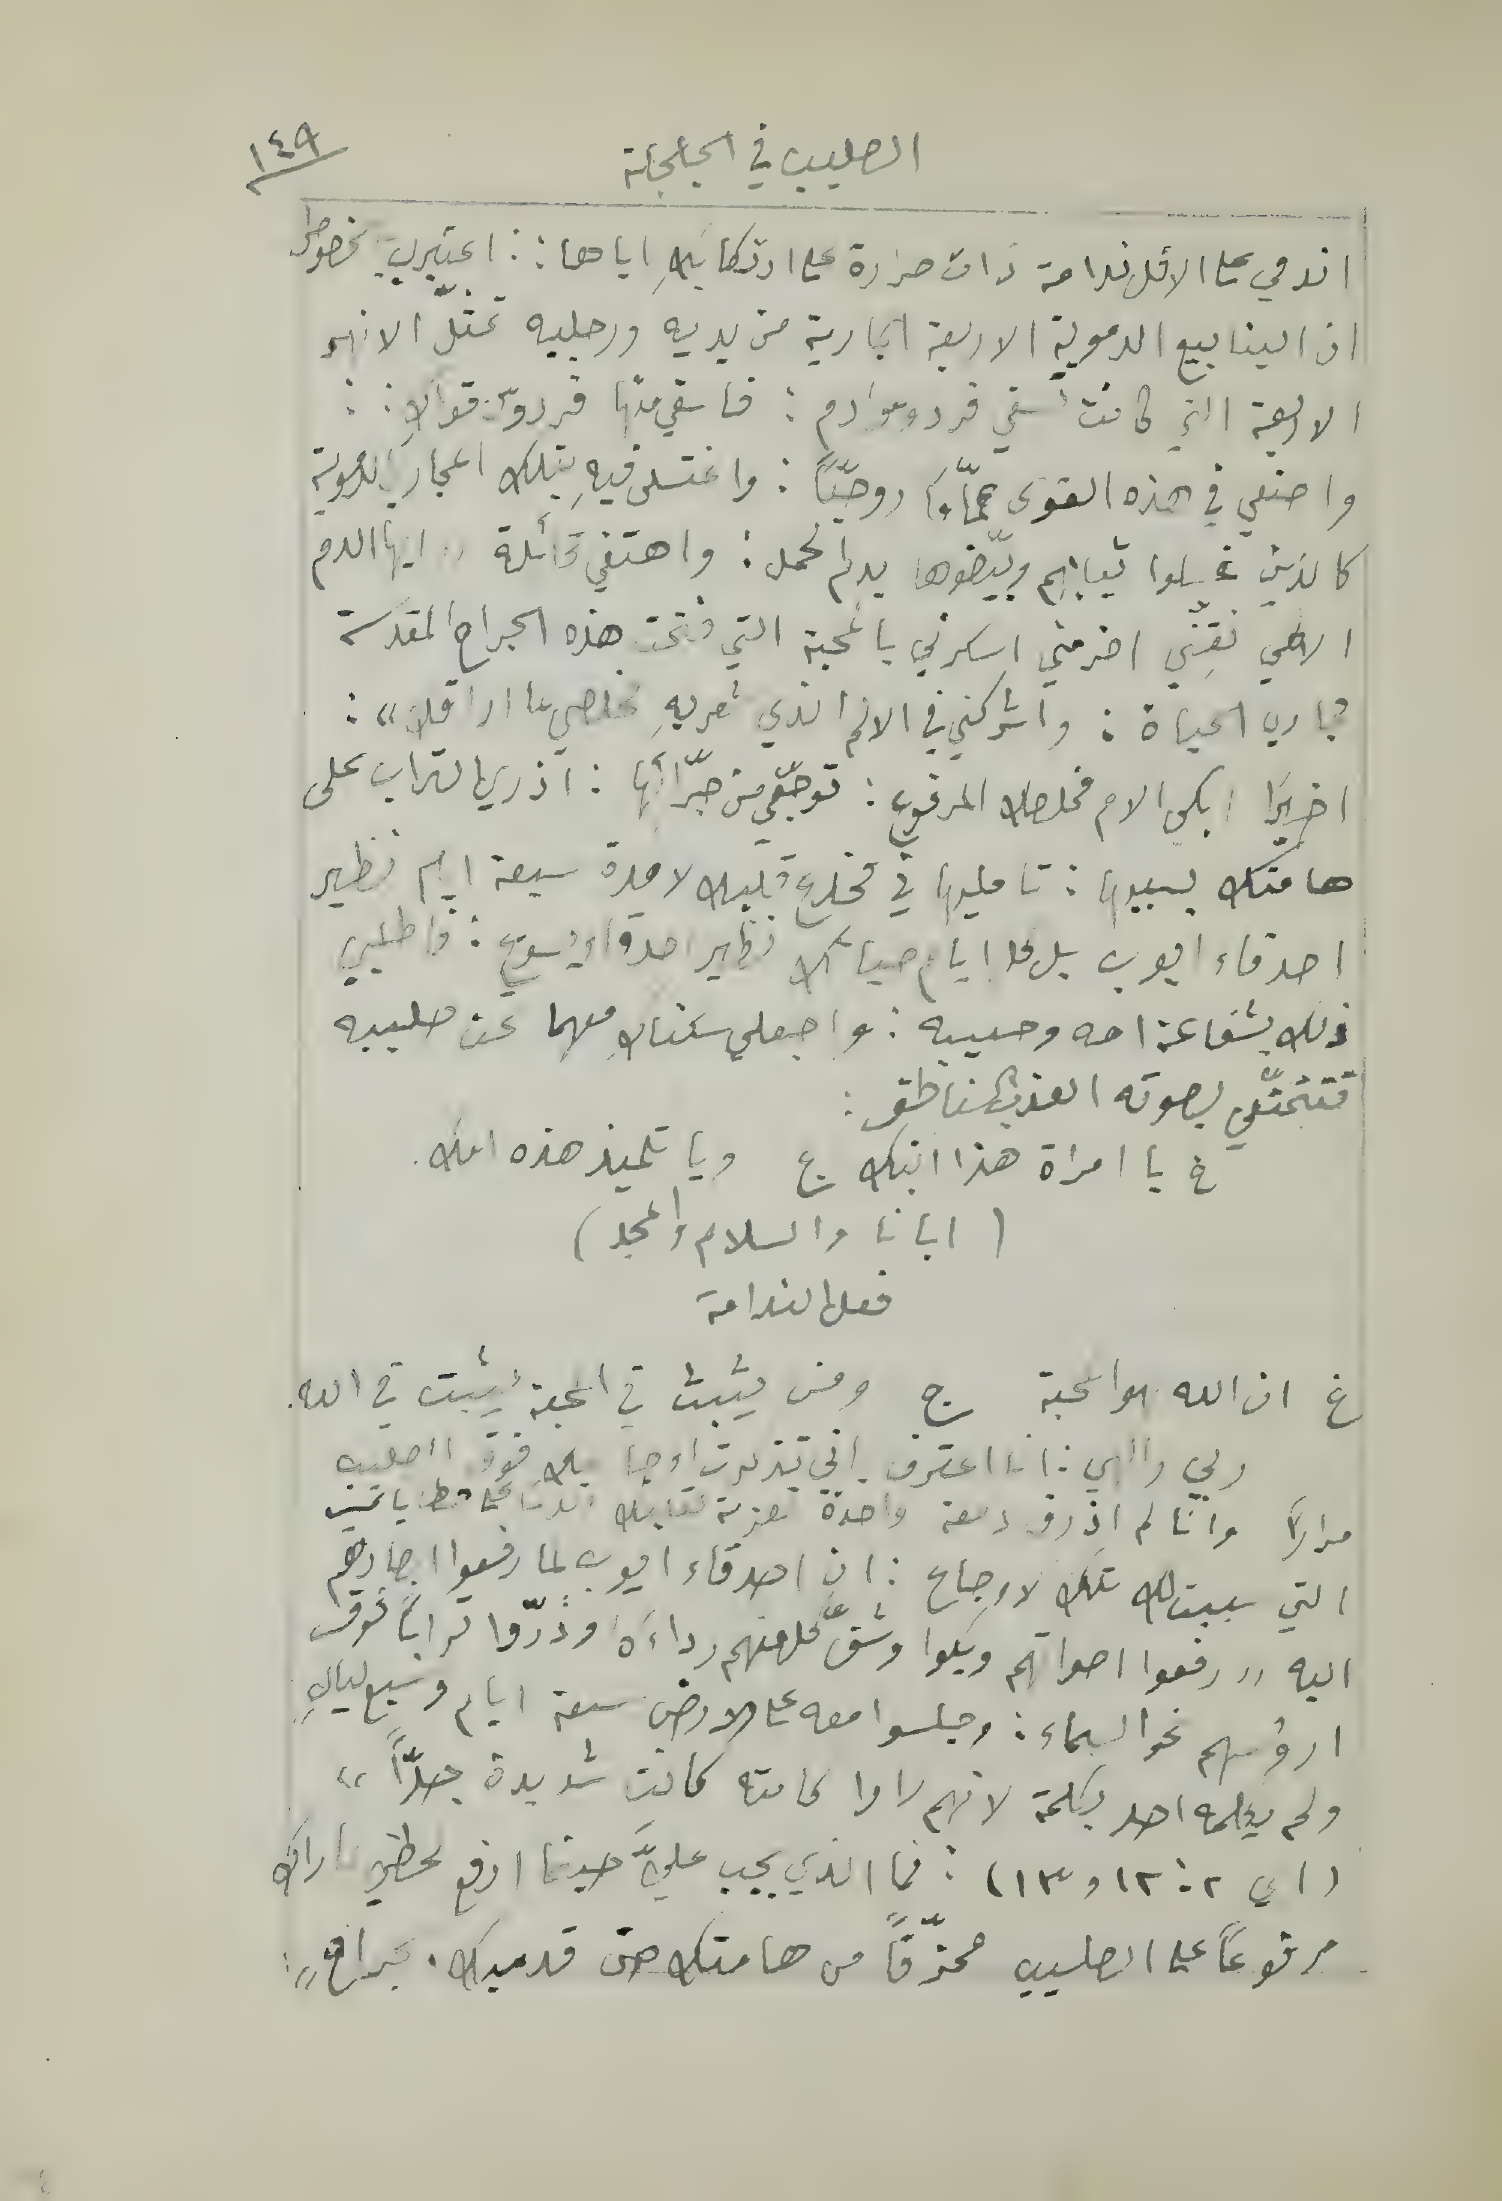 الصليب في الجلجلة
١٤٩
اندمي على الاقل ندامة ذات حرارة على ارتكابكِ اياها : اعتبري بخصوص
ان الينابيع الدموية الاربعة الجارية من يديه ورجليه تمثّل الانهر
الاربعة التي كانت تسقي فردوس ادم : فاسقي منها فردوس قواكِ :
واصنعي في هذه القوى عمّادًا روحيًّا : واغتسلي فيهِ بتلك المجاري الدموية
كالذين غسلوا ثيابهم وبيّضوها بدم الحمل : واهتفي قائلة «ايها الدم
الالهي نقِّني اضرمني اسكرني بالمحبة التي فتحت هذه الجراح المقدسة
مجاري الحياة : واشركني في الالم الذي شعر بهِ مخلصي لما اراقك» :
اخيرًا ابكي الام مخلصك المرفوع : توجّعي من جرّائها : اذري التراب على
هامتك بسببها : تامليها في مخدع قلبك لا مدة سبعة ايام نظير
اصدقاء ايوب بل كل ايام حياتك نظير اصدقاء يسوع : فاطلبي
ذلك بشفاعة امه وحبيبه : واجعلي سكناكِ معهما تحت صليبه
فتتمتّعي بصوته العذب الناطق :
غ يا امراة هذا ابنك ج ويا تلميذ هذه امك .
( ابانا والسلام والمجد )
فعل الندامة
غ ان الله هو المحبة ج ومن يثبت في المحبة يثبت في الله .
ربي والهي : انا اعترف باني تذكرت اوجاعك فوق الصليب
مرارًا وانا لم اذرف دمعة واحدة
التي سببت لك تلك الاوجاع : ان اصدقاء ايوب لما رفعوا ابصارهم
اليه «رفعوا اصواتهم وبكوا وشقَّ كل منهم رداءَه وذرّوا ترابًا فوق
ارؤسهم نحو السماء : وجلسوا معه على الارض سبعة ايام وسبع ليالٍ
ولم يكلمه احد بكلمة لانهم راوا كابته كانت شديدة جدًّا»
(اي ٢ : ١٢ و ١٣) : فما الذي يجب عليَّ حينما ارفع لحظي لاراك
مرفوعًا على الصليب ممزّقًا من هامتك حتى قدميك . بجراح